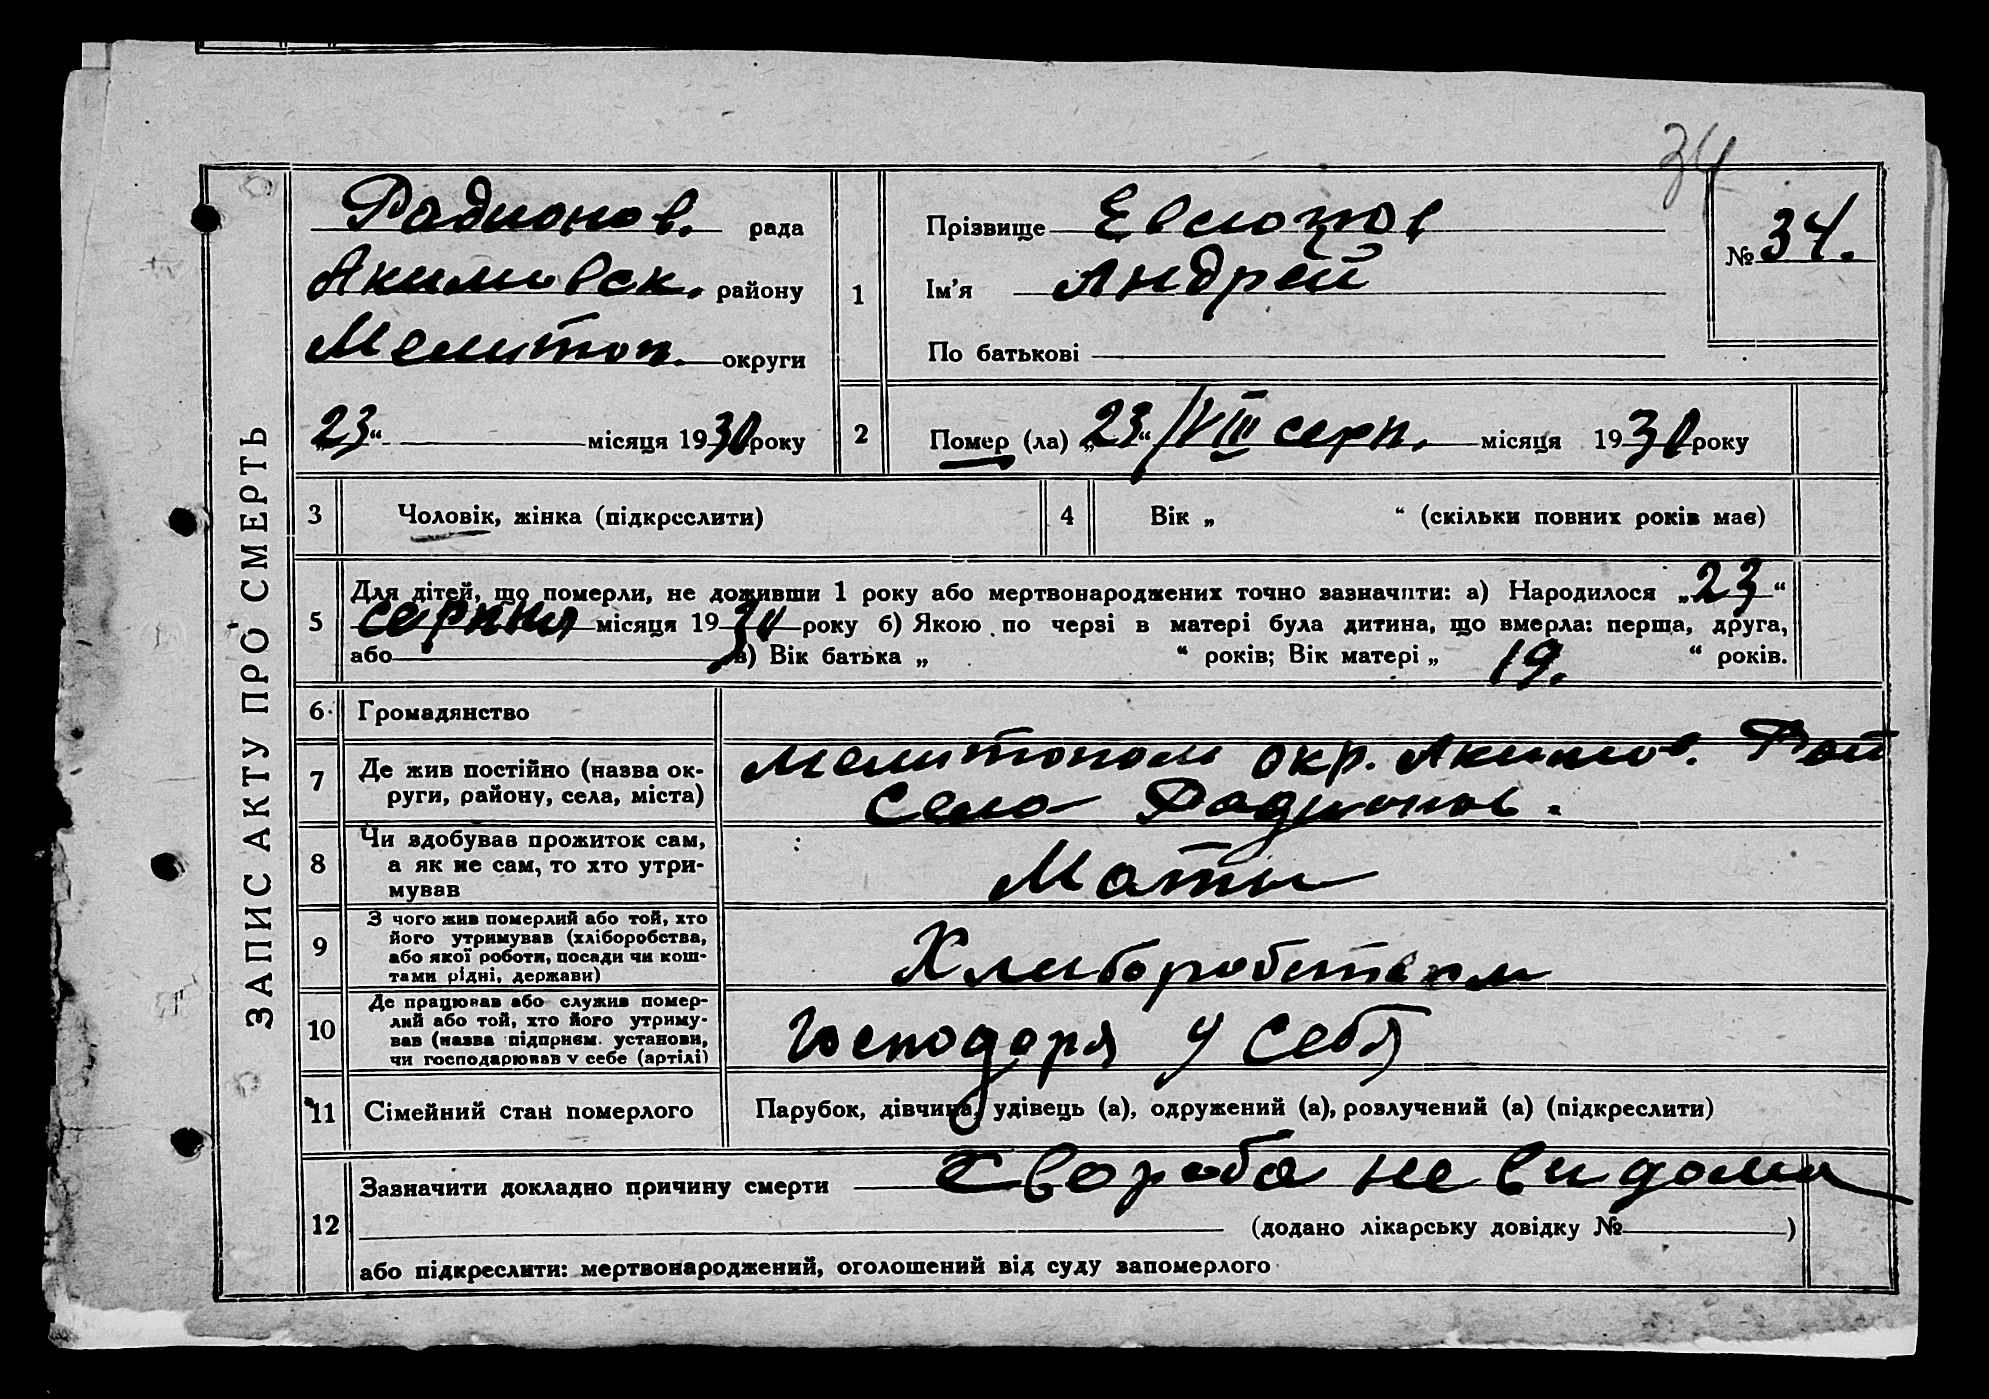 34
ЗАПИС АКТУ ПРО СМЕРТЬ
Радионов. рада
Акимовск. району
Мелитоп. округи
„23“ місяця 1930 року
1
Прізвище
Ім'я Андрей
По батькові
№ 34.
2
Помер (ла) „23“ /VIII серп. місяця 1930 року
3 Чоловік, жінка (підкреслити)
4 Вік „ “ (скільки повних років має)
5
Для дітей, що померли, не доживши 1 року або мертвонароджених точно зазначити: а) Народилося „23“
серпня місяця 1930 року б) Якою по черзі в матері була дитина, що вмерла: перша, друга,
або в) Вік батька „ “ років; Вік матері „ 19. “ років.
6 Громадянство
7 Де жив постійно (назва ок-
руги, району, села, міста)
окр. Акимов. Рай
село Радионов.
8 Чи здобував прожиток сам,
а як не сам, то хто утри-
мував
Мати
9 З чого жив померлий або той, хто
його утримував (хліборобства,
або якої роботи, посади чи кош-
тами рідні, держави)
Хлиборобством
10 Де працював або служив помер-
лий або той, хто його утриму-
вав (назва підприєм. установи,
чи господарював у себе (артілі)
Господоря у себя
11 Сімейний стан померлого
Парубок, дівчина, удівець (а), одружений (а), розлучений (а) (підкреслити)
12
Зазначити докладно причину смерти хвороба не видома
(додано лікарську довідку № )
або підкреслити: мертвонароджений, оголошений від суду запомерлого